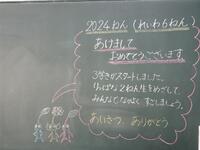 2024ねん(れいわ6ねん)
あけまして
おめでとうございます
3学きがスタートしました。
りっぱな2ねん生をめざして、
みんなでなかよく すごしましょう。
あいさつ、ありがとう